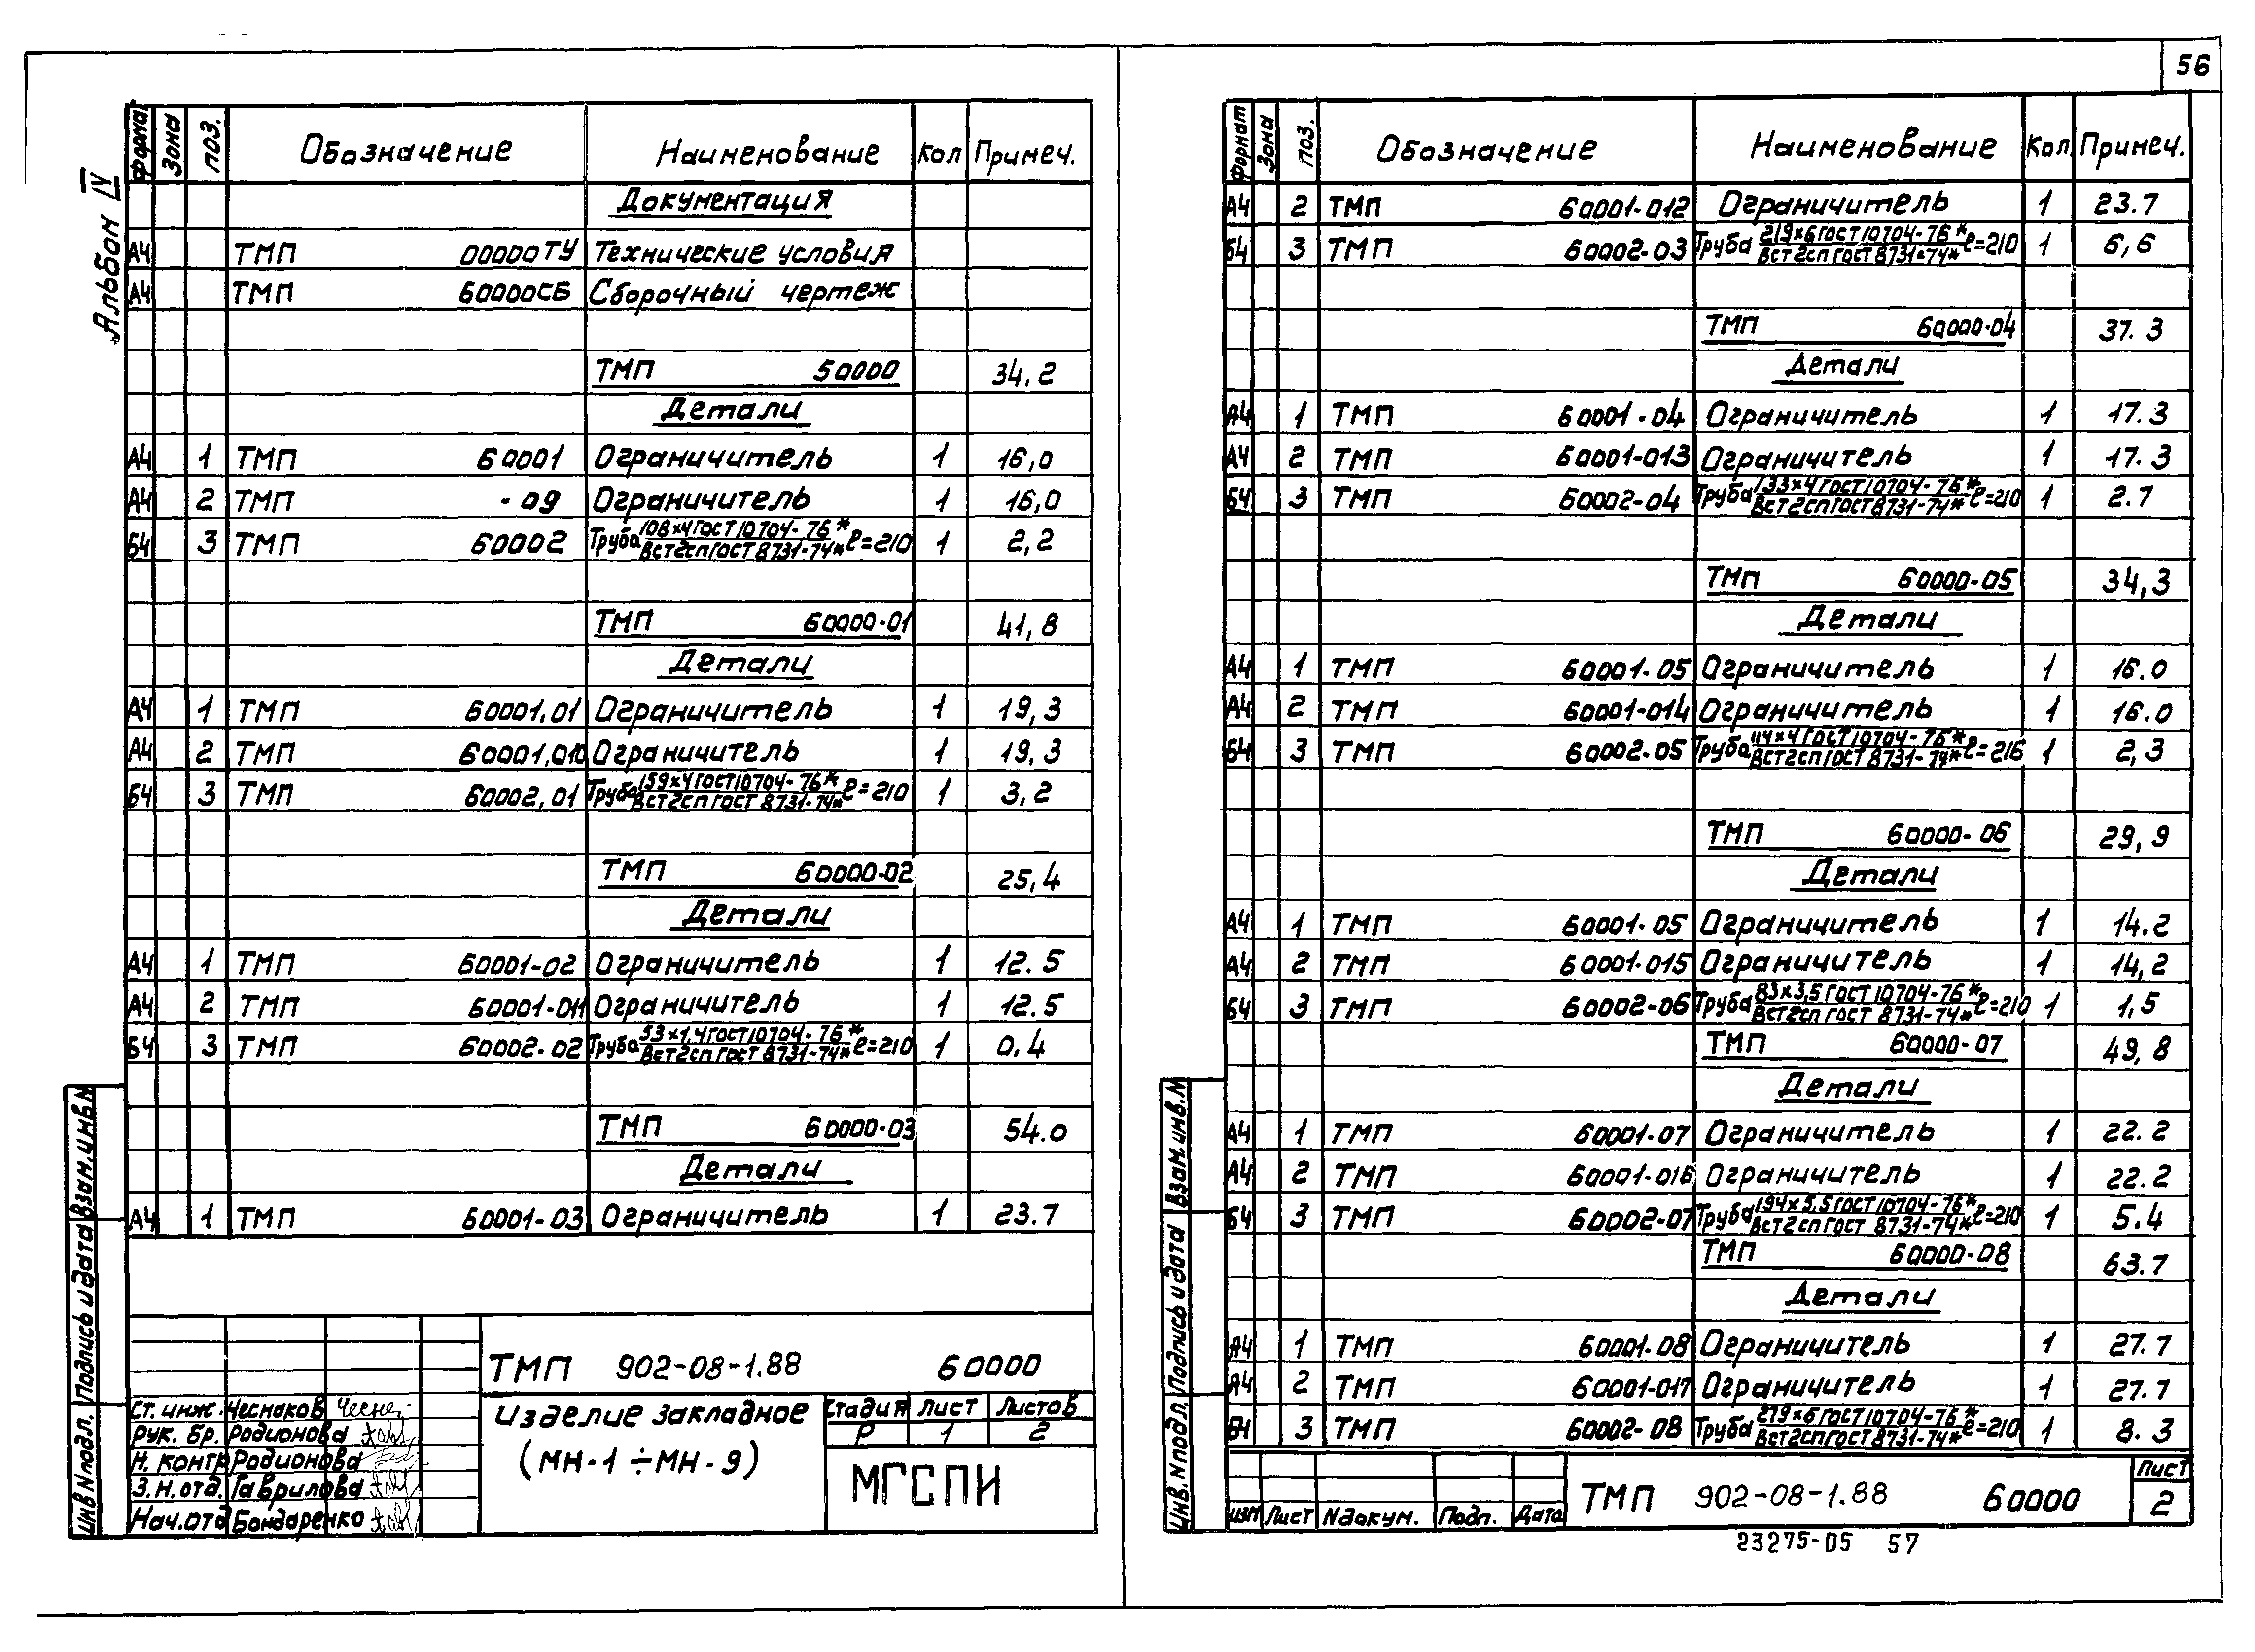 56
Альбом IV
Формат Зона Поз. Обозначение Наименование Кол Примеч.
Документация
А4 ТМП 00000ТУ Технические условия
А4 ТМП 60000СБ Сборочный чертеж
ТМП 50000 34,2
Детали
А4 1 ТМП 60001 Ограничитель 1 16,0
А4 2 ТМП -09 Ограничитель 1 16,0
Б4 3 ТМП 60002 Труба 108х4 ГОСТ 10704-76* / ВСТ2сп ГОСТ 8731-74* ℓ=210 1 2,2
ТМП 60000-01 41,8
Детали
А4 1 ТМП 60001,01 Ограничитель 1 19,3
А4 2 ТМП 60001,010 Ограничитель 1 19,3
Б4 3 ТМП 60002,01 Труба 159х4 ГОСТ 10704-76* / ВСТ2сп ГОСТ 8731-74* ℓ=210 1 3,2
ТМП 60000-02 25,4
Детали
А4 1 ТМП 60001-02 Ограничитель 1 12.5
А4 2 ТМП 60001-011 Ограничитель 1 12.5
Б4 3 ТМП 60002-02 Труба 53х1,4 ГОСТ 10704-76* / ВСТ2сп ГОСТ 8731-74* ℓ=210 1 0,4
ТМП 60000-03 54.0
Детали
А4 1 ТМП 60001-03 Ограничитель 1 23.7
ТМП 902-08-1.88 60000
Ст. инж. Чеснаков
Рук. бр. Родионова
Н. контр Родионова
З. н. отд. Гаврилова
Нач. отд Бондаренко
Изделие закладное
(МН-1÷МН-9)
Стадия Лист Листов
Р 1 2
МГСПИ
Инв N подл. Подпись и дата Взам. инв N
Формат Зона Поз. Обозначение Наименование Кол Примеч.
А4 2 ТМП 60001-012 Ограничитель 1 23.7
Б4 3 ТМП 60002-03 Труба 219х6 ГОСТ 10704-76* / ВСТ2сп ГОСТ 8731-74* ℓ=210 1 6,6
ТМП 60000-04 37.3
Детали
А4 1 ТМП 60001-04 Ограничитель 1 17.3
А4 2 ТМП 60001-013 Ограничитель 1 17.3
Б4 3 ТМП 60002-04 Труба 133х4 ГОСТ 10704-76* / ВСТ2сп ГОСТ 8731-74* ℓ=210 1 2.7
ТМП 60000-05 34,3
Детали
А4 1 ТМП 60001-05 Ограничитель 1 16.0
А4 2 ТМП 60001-014 Ограничитель 1 16.0
Б4 3 ТМП 60002-05 Труба 114х4 ГОСТ 10704-76* / ВСТ2сп ГОСТ 8731-74* ℓ=216 1 2,3
ТМП 60000-06 29,9
Детали
А4 1 ТМП 60001-05 Ограничитель 1 14.2
А4 2 ТМП 60001-015 Ограничитель 1 14,2
Б4 3 ТМП 60002-06 Труба 83х3,5 ГОСТ 10704-76* / ВСТ2сп ГОСТ 8731-74* ℓ=210 1 1,5
ТМП 60000-07 49,8
Детали
А4 1 ТМП 60001-07 Ограничитель 1 22.2
А4 2 ТМП 60001-016 Ограничитель 1 22.2
Б4 3 ТМП 60002-07 Труба 194х5,5 ГОСТ 10704-76* / ВСТ2сп ГОСТ 8731-74* ℓ=210 1 5.4
ТМП 60000-08 63.7
Детали
А4 1 ТМП 60001-08 Ограничитель 1 27.7
А4 2 ТМП 60001-017 Ограничитель 1 27.7
Б4 3 ТМП 60002-08 Труба 279х6 ГОСТ 10704-76* / ВСТ2сп ГОСТ 8731-74* ℓ=210 1 8.3
Изм Лист N докум. Подп. Дата
ТМП 902-08-1.88 60000
Лист
2
Инв. N подл. Подпись и дата Взам. инв. N
23275-05 57